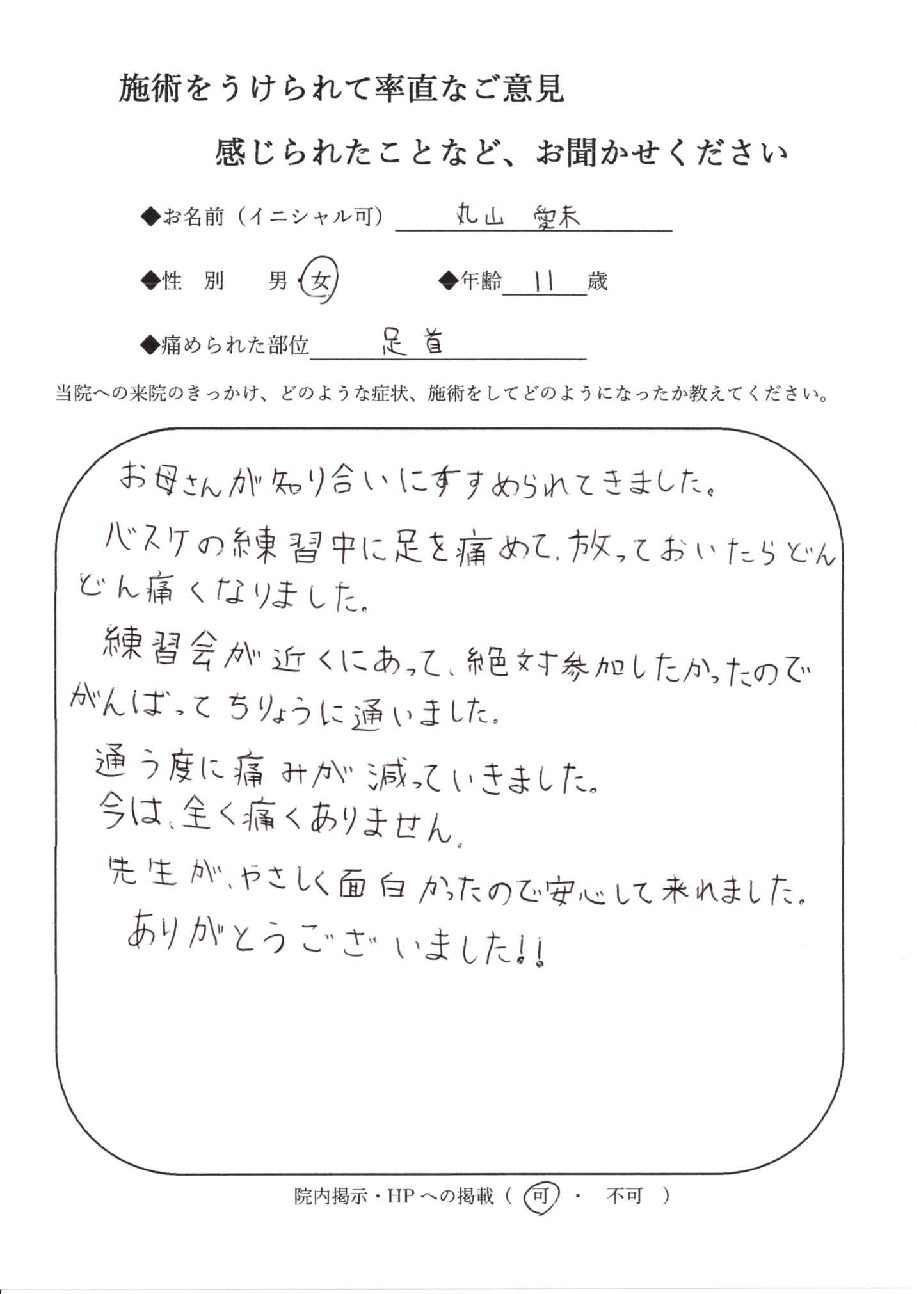 施術をうけられて率直なご意見
感じられたことなど、お聞かせください
◆お名前（イニシャル可） 丸山 愛未
◆性 別 男・女 ◆年齢 11 歳
◆痛められた部位 足首
当院への来院のきっかけ、どのような症状、施術をしてどのようになったか教えてください。
お母さんが知り合いにすすめられてきました。
バスケの練習中に足を痛めて、放っておいたらどん
どん痛くなりました。
練習会が近くにあって、絶対参加したかったので
がんばってちりょうに通いました。
通う度に痛みが減っていきました。
今は、全く痛くありません。
先生が、やさしく面白かったので安心して来れました。
ありがとうございました!!
院内掲示・HPへの掲載（ 可 ・ 不可 ）